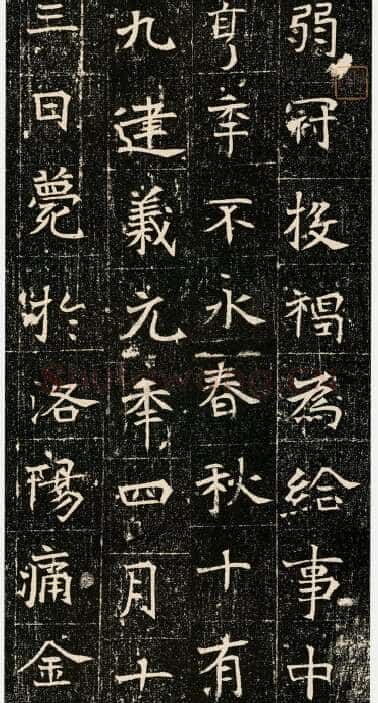 弱冠投褐為給事中
享年不永春秋十有
九建義元年四月十
三日薨於洛陽痛金